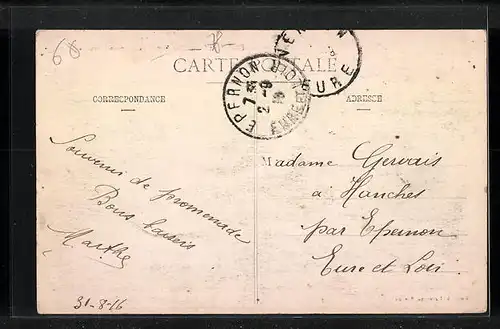 68
CARTE POSTALE
CORRESPONDANCE
ADRESSE
EPERNON
EURE
Souvenir de promenade
Bons baisers
Marthe
31-8-16
Madame Gervais
à Hanches
par Epernon
Eure et Loir